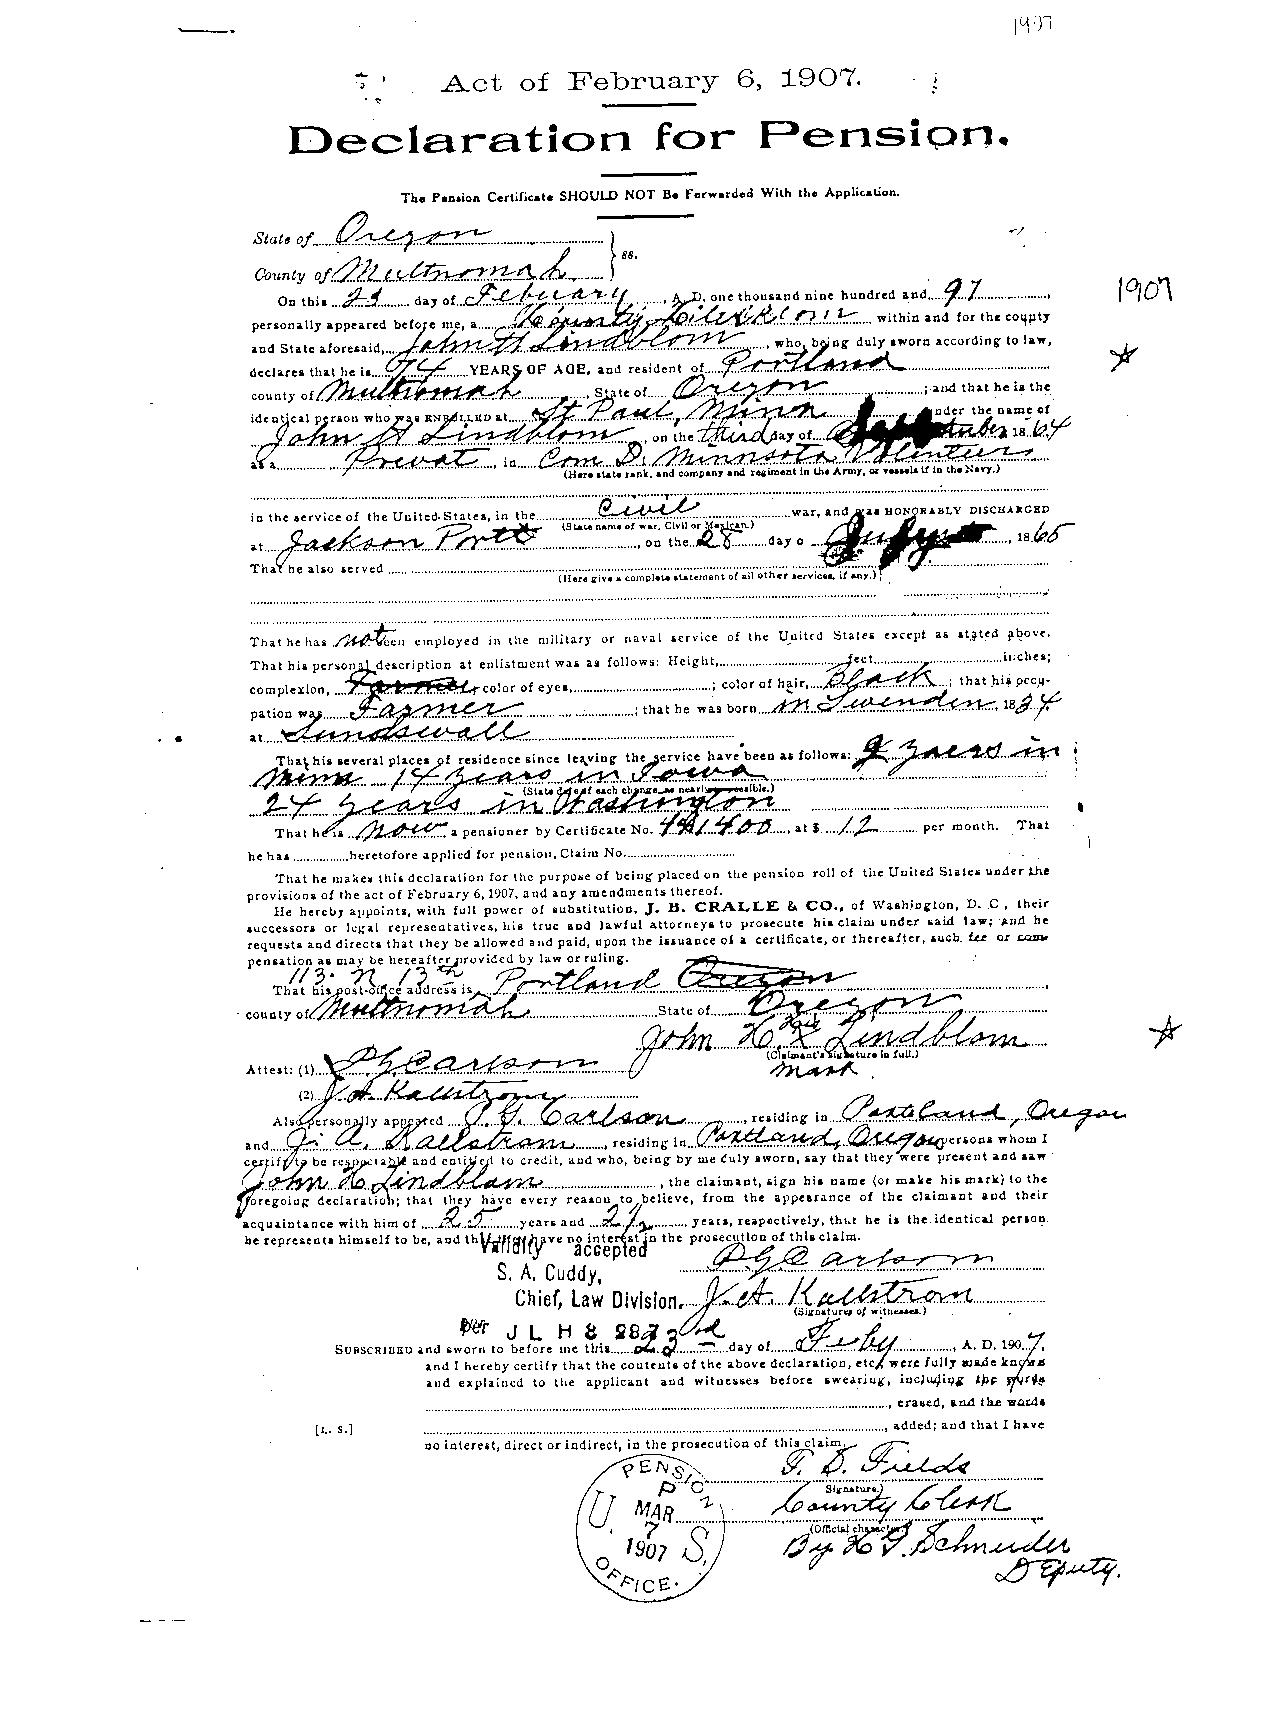 1907
Act of February 6, 1907.
Declaration for Pension.
The Pension Certificate SHOULD NOT Be Forwarded With the Application.
State of Oregon
County of Multnomah } ss.
On this 23 day of Febuary, A. D. one thousand nine hundred and 97,
1907
personally appeared before me, a County Clerk within and for the county
and State aforesaid, John H Lindblom, who, being duly sworn according to law,
declares that he is 74 YEARS OF AGE, and resident of Portland
county of Multnomah, State of Oregon; and that he is the
identical person who was ENROLLED at St Paul, Minn under the name of
John H Lindblom, on the third day of 1864
as a Privat, in Com D. Minnsota Volenteers
(Here state rank, and company and regiment in the Army, or vessels if in the Navy.)
in the service of the United States, in the Civil war, and was HONORABLY DISCHARGED
(State name of war, Civil or Mexican.)
at Jackson Portt, on the 28 day o July, 1865
That he also served
(Here give a complete statement of all other services, if any.)
That he has not been employed in the military or naval service of the United States except as stated above.
That his personal description at enlistment was as follows: Height, feet inches;
complexion, Farmer color of eyes, ; color of hair, Black; that his occu-
pation was Farmer; that he was born in Swenden, 1834
at Sundswall
That his several places of residence since leaving the service have been as follows: 2 years in
Minn 14 years in Iowa
(State date of each change, as nearly as possible.)
24 years in Washington
That he is now a pensioner by Certificate No. 441400, at $ 12 per month. That
he has heretofore applied for pension, Claim No.
That he makes this declaration for the purpose of being placed on the pension roll of the United States under the
provisions of the act of February 6, 1907, and any amendments thereof.
He hereby appoints, with full power of substitution, J. B. CRALLE & CO., of Washington, D. C., their
successors or legal representatives, his true and lawful attorneys to prosecute his claim under said law; and he
requests and directs that they be allowed and paid, upon the issuance of a certificate, or thereafter, such fee or com-
pensation as may be hereafter provided by law or ruling.
113. N 13th
That his post-office address is Portland Oregon
county of Multnomah State of Oregon
John H his X Lindblom
(Claimant's signature in full.)
mark
Attest: (1) P G Carlson
(2) J. A. Kallstrom
Also personally appeared P. G. Carlson, residing in Portland, Oregon
and J. A. Kallstrom, residing in Portland, Oregon persons whom I
certify to be respectable and entitled to credit, and who, being by me duly sworn, say that they were present and saw
John H Lindblom, the claimant, sign his name (or make his mark) to the
foregoing declaration; that they have every reason to believe, from the appearance of the claimant and their
acquaintance with him of 25 years and 2½ years, respectively, that he is the identical person
he represents himself to be, and that they have no interest in the prosecution of this claim.
Validity accepted
P G Carlson
S. A. Cuddy,
Chief, Law Division.
J. A. Kallstrom
(Signatures of witnesses.)
per J L H
SUBSCRIBED and sworn to before me this 23rd day of Feby, A. D. 1907,
and I hereby certify that the contents of the above declaration, etc., were fully made known
and explained to the applicant and witnesses before swearing, including the words
, erased, and the words
[L. S.] , added; and that I have
no interest, direct or indirect, in the prosecution of this claim.
F. S. Fields
(Signature.)
County Clerk
(Official character.)
By H G. Schneider
Deputy.
U. S. PENSION OFFICE.
P
MAR
7
1907